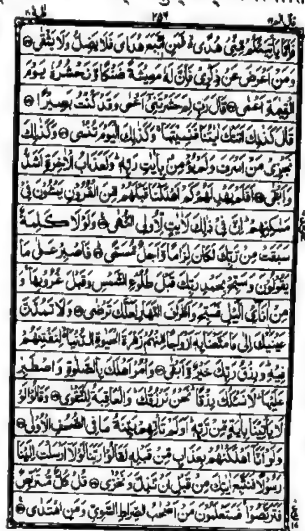 فَاِمَّا يَاْتِيَنَّكُمْ مِّنِّيْ هُدًى فَمَنِ اتَّبَعَ هُدَايَ فَلَا يَضِلُّ وَلَا يَشْقٰى
وَمَنْ اَعْرَضَ عَنْ ذِكْرِيْ فَاِنَّ لَهٗ مَعِيْشَةً ضَنْكًا وَّنَحْشُرُهٗ يَوْمَ
الْقِيٰمَةِ اَعْمٰى قَالَ رَبِّ لِمَ حَشَرْتَنِيْٓ اَعْمٰى وَقَدْ كُنْتُ بَصِيْرًا
قَالَ كَذٰلِكَ اَتَتْكَ اٰيٰتُنَا فَنَسِيْتَهَا وَكَذٰلِكَ الْيَوْمَ تُنْسٰى وَكَذٰلِكَ
نَجْزِيْ مَنْ اَسْرَفَ وَلَمْ يُؤْمِنْ بِاٰيٰتِ رَبِّهٖ وَلَعَذَابُ الْاٰخِرَةِ اَشَدُّ
وَاَبْقٰى اَفَلَمْ يَهْدِ لَهُمْ كَمْ اَهْلَكْنَا قَبْلَهُمْ مِّنَ الْقُرُوْنِ يَمْشُوْنَ فِيْ
مَسٰكِنِهِمْ اِنَّ فِيْ ذٰلِكَ لَاٰيٰتٍ لِّاُولِي النُّهٰى وَلَوْلَا كَلِمَةٌ
سَبَقَتْ مِنْ رَّبِّكَ لَكَانَ لِزَامًا وَّاَجَلٌ مُّسَمًّى فَاصْبِرْ عَلٰى مَا
يَقُوْلُوْنَ وَسَبِّحْ بِحَمْدِ رَبِّكَ قَبْلَ طُلُوْعِ الشَّمْسِ وَقَبْلَ غُرُوْبِهَا وَ
مِنْ اٰنَآئِ الَّيْلِ فَسَبِّحْ وَاَطْرَافَ النَّهَارِ لَعَلَّكَ تَرْضٰى وَلَا تَمُدَّنَّ
عَيْنَيْكَ اِلٰى مَا مَتَّعْنَا بِهٖٓ اَزْوَاجًا مِّنْهُمْ زَهْرَةَ الْحَيٰوةِ الدُّنْيَا لِنَفْتِنَهُمْ
فِيْهِ وَرِزْقُ رَبِّكَ خَيْرٌ وَّاَبْقٰى وَاْمُرْ اَهْلَكَ بِالصَّلٰوةِ وَاصْطَبِرْ
عَلَيْهَا لَا نَسْـَٔلُكَ رِزْقًا نَحْنُ نَرْزُقُكَ وَالْعَاقِبَةُ لِلتَّقْوٰى وَقَالُوْا لَوْ
لَا يَاْتِيْنَا بِاٰيَةٍ مِّنْ رَّبِّهٖ اَوَلَمْ تَاْتِهِمْ بَيِّنَةُ مَا فِي الصُّحُفِ الْاُوْلٰى
وَلَوْ اَنَّآ اَهْلَكْنٰهُمْ بِعَذَابٍ مِّنْ قَبْلِهٖ لَقَالُوْا رَبَّنَا لَوْلَآ اَرْسَلْتَ اِلَيْنَا
رَسُوْلًا فَنَتَّبِعَ اٰيٰتِكَ مِنْ قَبْلِ اَنْ نَّذِلَّ وَنَخْزٰى قُلْ كُلٌّ مُّتَرَبِّصٌ
فَتَرَبَّصُوْا فَسَتَعْلَمُوْنَ مَنْ اَصْحٰبُ الصِّرَاطِ السَّوِيِّ وَمَنِ اهْتَدٰى